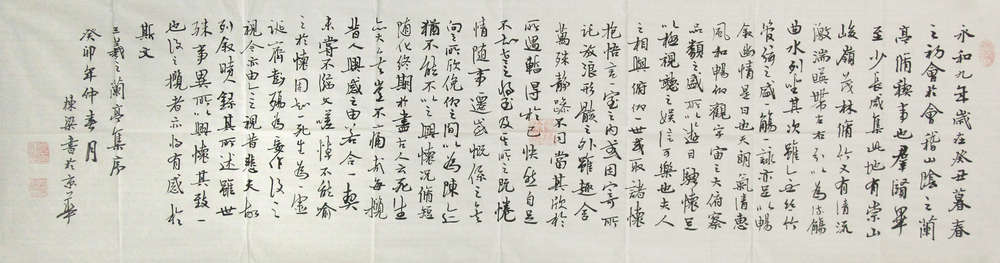 永和九年歲在癸丑暮春
之初會於會稽山陰之蘭
亭脩稧事也群賢畢
至少長咸集此地有崇山
峻嶺茂林脩竹又有清流
激湍暎帶左右引以為流觴
曲水列坐其次雖無絲竹
管絃之盛一觴一詠亦足以暢
敘幽情是日也天朗氣清惠
風和暢仰觀宇宙之大俯察
品類之盛所以遊目騁懷足
以極視聽之娛信可樂也夫人
之相與俯仰一世或取諸懷
抱悟言一室之內或因寄所
託放浪形骸之外雖趣舍
萬殊靜躁不同當其欣於
所遇暫得於己快然自足
不知老之將至及其所之既惓
情隨事遷感慨係之矣
向之所欣俛仰之間以為陳迹
猶不能不以之興懷況脩短
隨化終期於盡古人云死生
亦大矣豈不痛哉每攬
昔人興感之由若合一契
未嘗不臨文嗟悼不能喻
之於懷固知一死生為虛
誕齊彭殤為妄作後之
視今亦由今之視昔悲夫故
列敘時人錄其所述雖世
殊事異所以興懷其致一
也後之攬者亦將有感於
斯文
王羲之蘭亭集序
癸卯年仲春月
梁書於京華